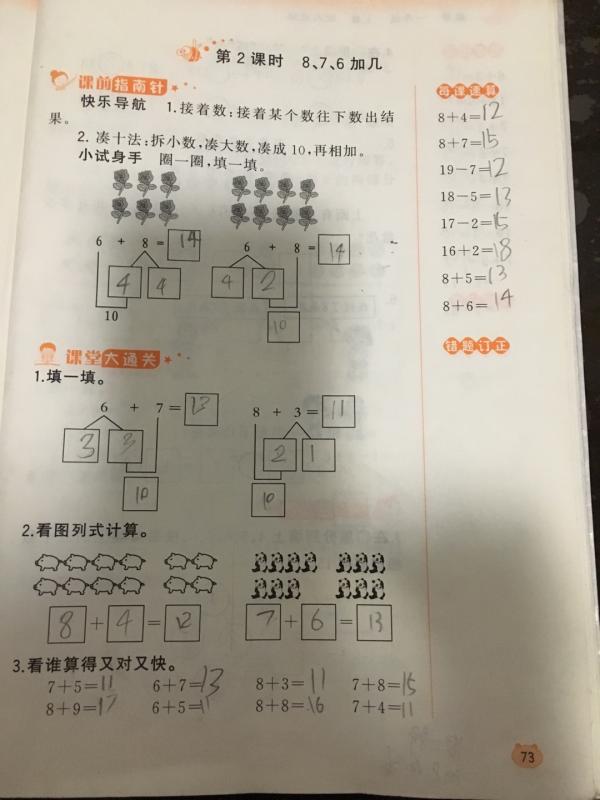 第2课时 8、7、6加几
课前指南针
快乐导航 1.接着数:接着某个数往下数出结
果。
2.凑十法:拆小数,凑大数,凑成10,再相加。
小试身手 圈一圈,填一填。
6 + 8 = 14
4 4
10
6 + 8 = 14
4 2
10
课堂大通关
1.填一填。
6 + 7 = 13
3 3
10
8 + 3 = 11
2 1
10
2.看图列式计算。
8 + 4 = 12
7 + 6 = 13
3.看谁算得又对又快。
7+5=11 6+7=13 8+3=11 7+8=15
8+9=17 6+5=11 8+8=16 7+4=11
每课速算
8+4=12
8+7=15
19-7=12
18-5=13
17-2=15
16+2=18
8+5=13
8+6=14
错题订正
73